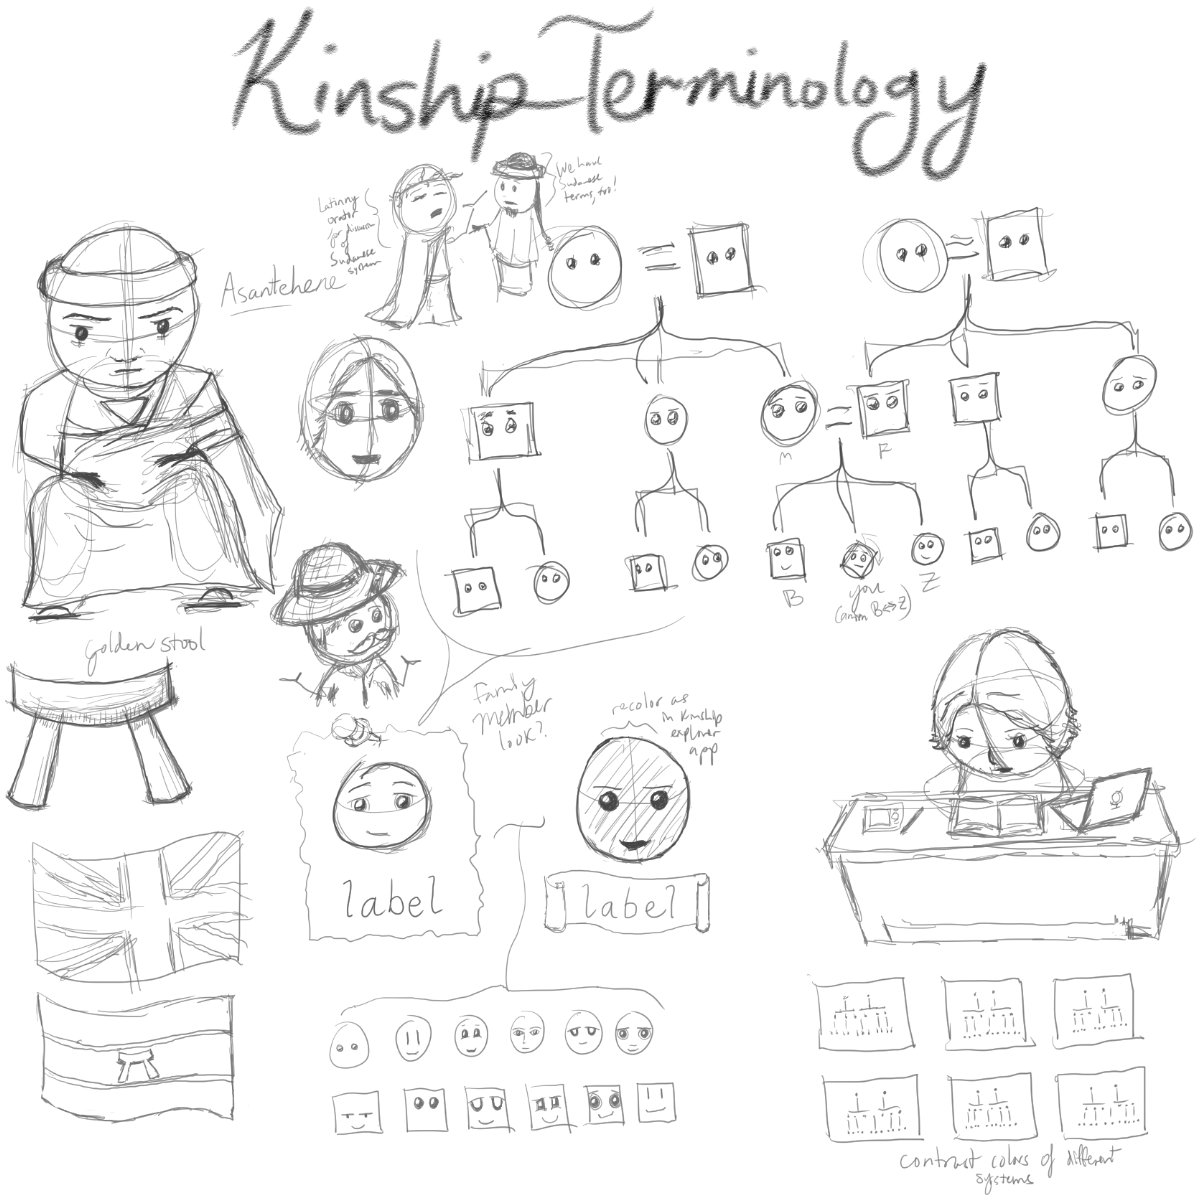 Kinship Terminology
Latinny
orator
for discussion
of
Sudanese
system
We have
Sudanese
terms, too!
Asantehene
M
F
B
you
(anim B↔Z)
Z
golden stool
Family
member
look?
recolor as
in Kinship
explorer
app
label
label
contrast colors of different
systems